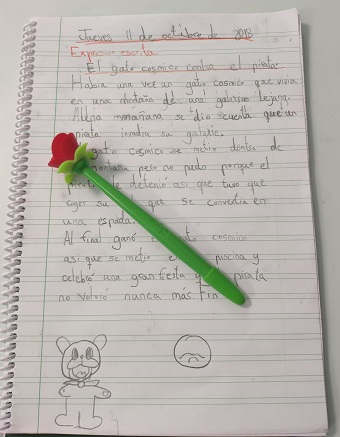 Jueves 11 de octubre de 2018
Expresión escrita
El gato cosmico contra el pirata
Habia una vez un gato cosmico que vivia
en una montaña de una galaxia lejana.
una mañana se dio cuenta que un
pirata invadia su galaxia.
gato cosmico se metio dentro de
montaña pero no pudo porque el
pirata le detenió asi que tuvo que
coger su que se convertia en
una espada.
Al final ganó gato cosmico
asi que se metio piscina y
celebró una gran fiesta y pirata
no volvió nunca más. Fin